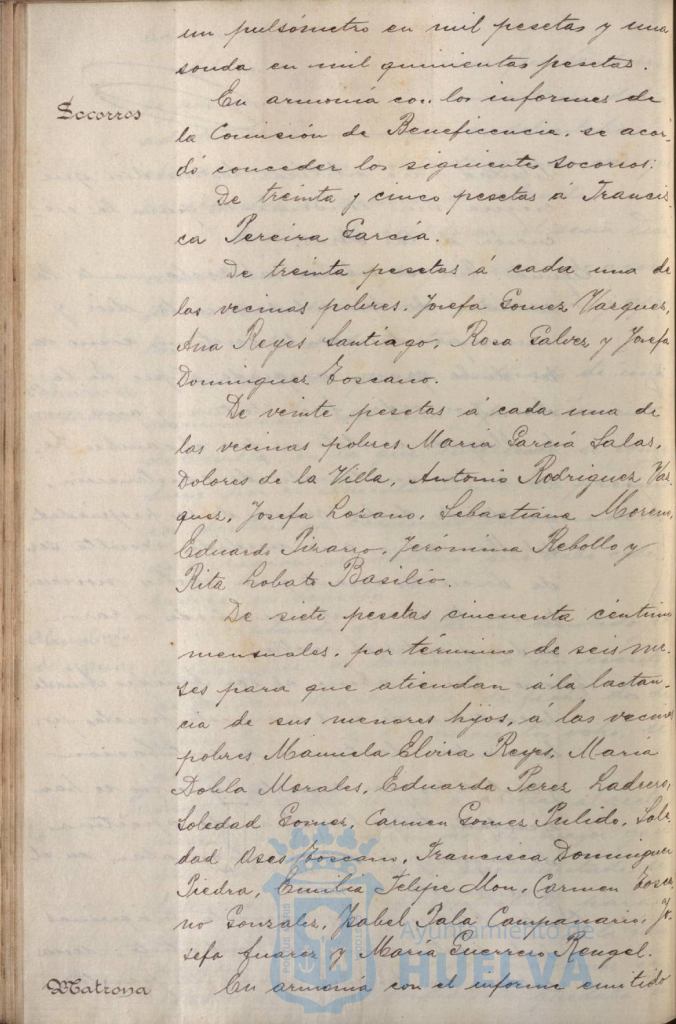 un pulsómetro en mil pesetas y una
sonda en mil quinientas pesetas.
Socorros
En armonía con los informes de
la Comisión de Beneficencia, se acor-
dó conceder los siguientes socorros:
De treinta y cinco pesetas á Francis-
ca Pereira García.
De treinta pesetas á cada una de
las vecinas pobres, Josefa Gomez Vazquez,
Ana Reyes Santiago, Rosa Galvez y Josefa
Dominguez Toscano.
De veinte pesetas á cada una de
las vecinas pobres María García Salas,
Dolores de la Villa, Antonio Rodriguez Vaz-
quez, Josefa Lozano, Sebastiana Moreno,
Eduardo Pizarro, Jerónima Rebollo y
Rita Lobato Basilio.
De siete pesetas cincuenta céntimos
mensuales, por término de seis me-
ses para que atiendan á la lactan-
cia de sus menores hijos, á las vecinas
pobres Manuela Elvira Reyes, María
Dobla Morales, Eduarda Perez Ladrero,
Soledad Gomez, Carmen Gomez Pulido, Sole-
dad Oses Toscano, Francisca Dominguez
Piedra, Emilia Felipe Mon, Carmen Tosca-
no Gonzalez, Isabel Pala Campanario, Jo-
sefa Suarez y María Guerrero Rengel.
Matrona
En armonía con el informe emitido
Ayuntamiento de
HUELVA